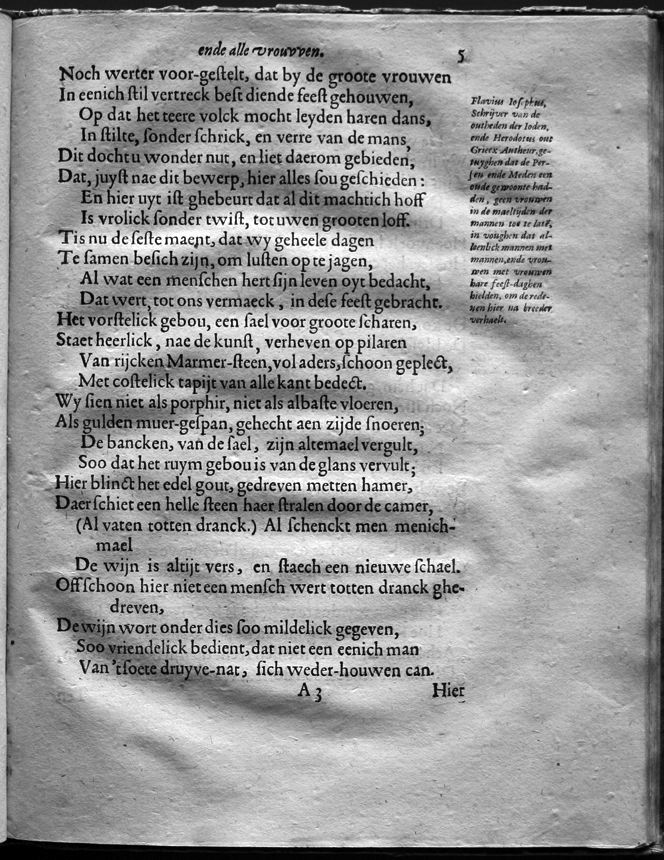 ende alle vrouwen. 5
Noch werter voor-gestelt, dat by de groote vrouwen
In eenich stil vertreck best diende feest gehouwen,
Op dat het teere volck mocht leyden haren dans,
In stilte, sonder schrick, en verre van de mans,
Dit docht u wonder nut, en liet daerom gebieden,
Dat, juyst nae dit bewerp, hier alles sou geschieden:
En hier uyt ist ghebeurt dat al dit machtich hoff
Is vrolick sonder twist, tot uwen grooten loff.
Tis nu de seste maent, dat wy geheele dagen
Te samen besich zijn, om lusten op te jagen,
Al wat een menschen hert sijn leven oyt bedacht,
Dat wert, tot ons vermaeck, in dese feest gebracht.
Het vorstelick gebou, een sael voor groote scharen,
Staet heerlick, nae de kunst, verheven op pilaren
Van rijcken Marmer-steen, vol aders, schoon geplect,
Met costelick tapijt van alle kant bedect.
Wy sien niet als porphir, niet als albaste vloeren,
Als gulden muer-gespan, gehecht aen zijde snoeren;
De bancken, van de sael, zijn altemael vergult,
Soo dat het ruym gebou is van de glans vervult;
Hier blinct het edel gout, gedreven metten hamer,
Daer schiet een helle steen haer stralen door de camer,
(Al vaten totten dranck.) Al schenckt men menich-
mael
De wijn is altijt vers, en staech een nieuwe schael.
Off schoon hier niet een mensch wert totten dranck ghe-
dreven,
De wijn wort onder dies soo mildelick gegeven,
Soo vriendelick bedient, dat niet een eenich man
Van 'tsoete druyve-nat, sich weder-houwen can.
A 3 Hier
Flavius Iosephus,
Schrijver van de
outheden der Ioden,
ende Herodotus out
Griecx Autheur, ge-
tuyghen dat de Per-
sen ende Meden een
oude gewoonte had-
den, geen vrouwen
in de maeltijden der
mannen toe te latē,
in voughen dat al-
leenlick mannen met
mannen, ende vrou-
wen met vrouwen
hare feest-daghen
hielden, om de rede-
nen hier na breeder
verhaelt.